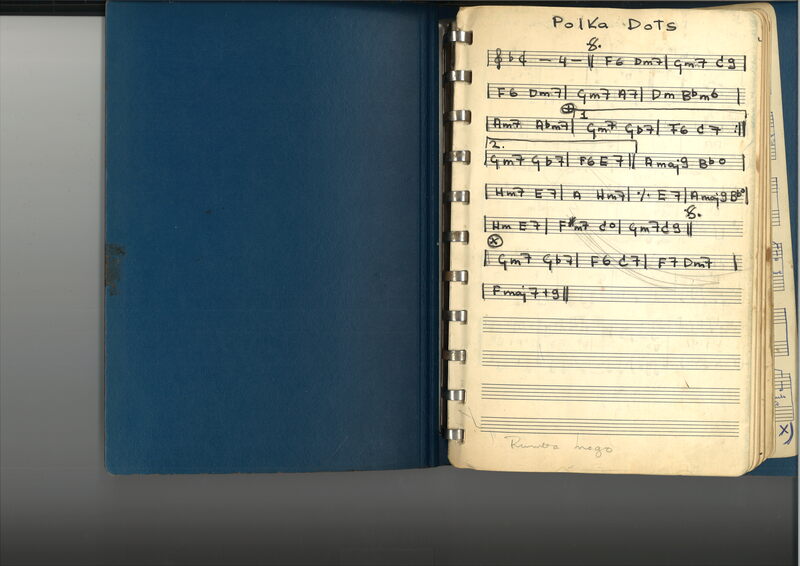 Polka Dots
8.
- 4 - F6 Dm7 Gm7 C9
F6 Dm7 Gm7 A7 Dm Bbm6
1.
Am7 Abm7 Gm7 Gb7 F6 C7
2.
Gm7 Gb7 F6 E7 Amaj9 Bbo
Hm7 E7 A Hm7 ٪ E7 Amaj9 Bbo
8.
Hm E7 F#m7 Co Gm7 C9
Gm7 Gb7 F6 C7 F7 Dm7
Fmaj7+9